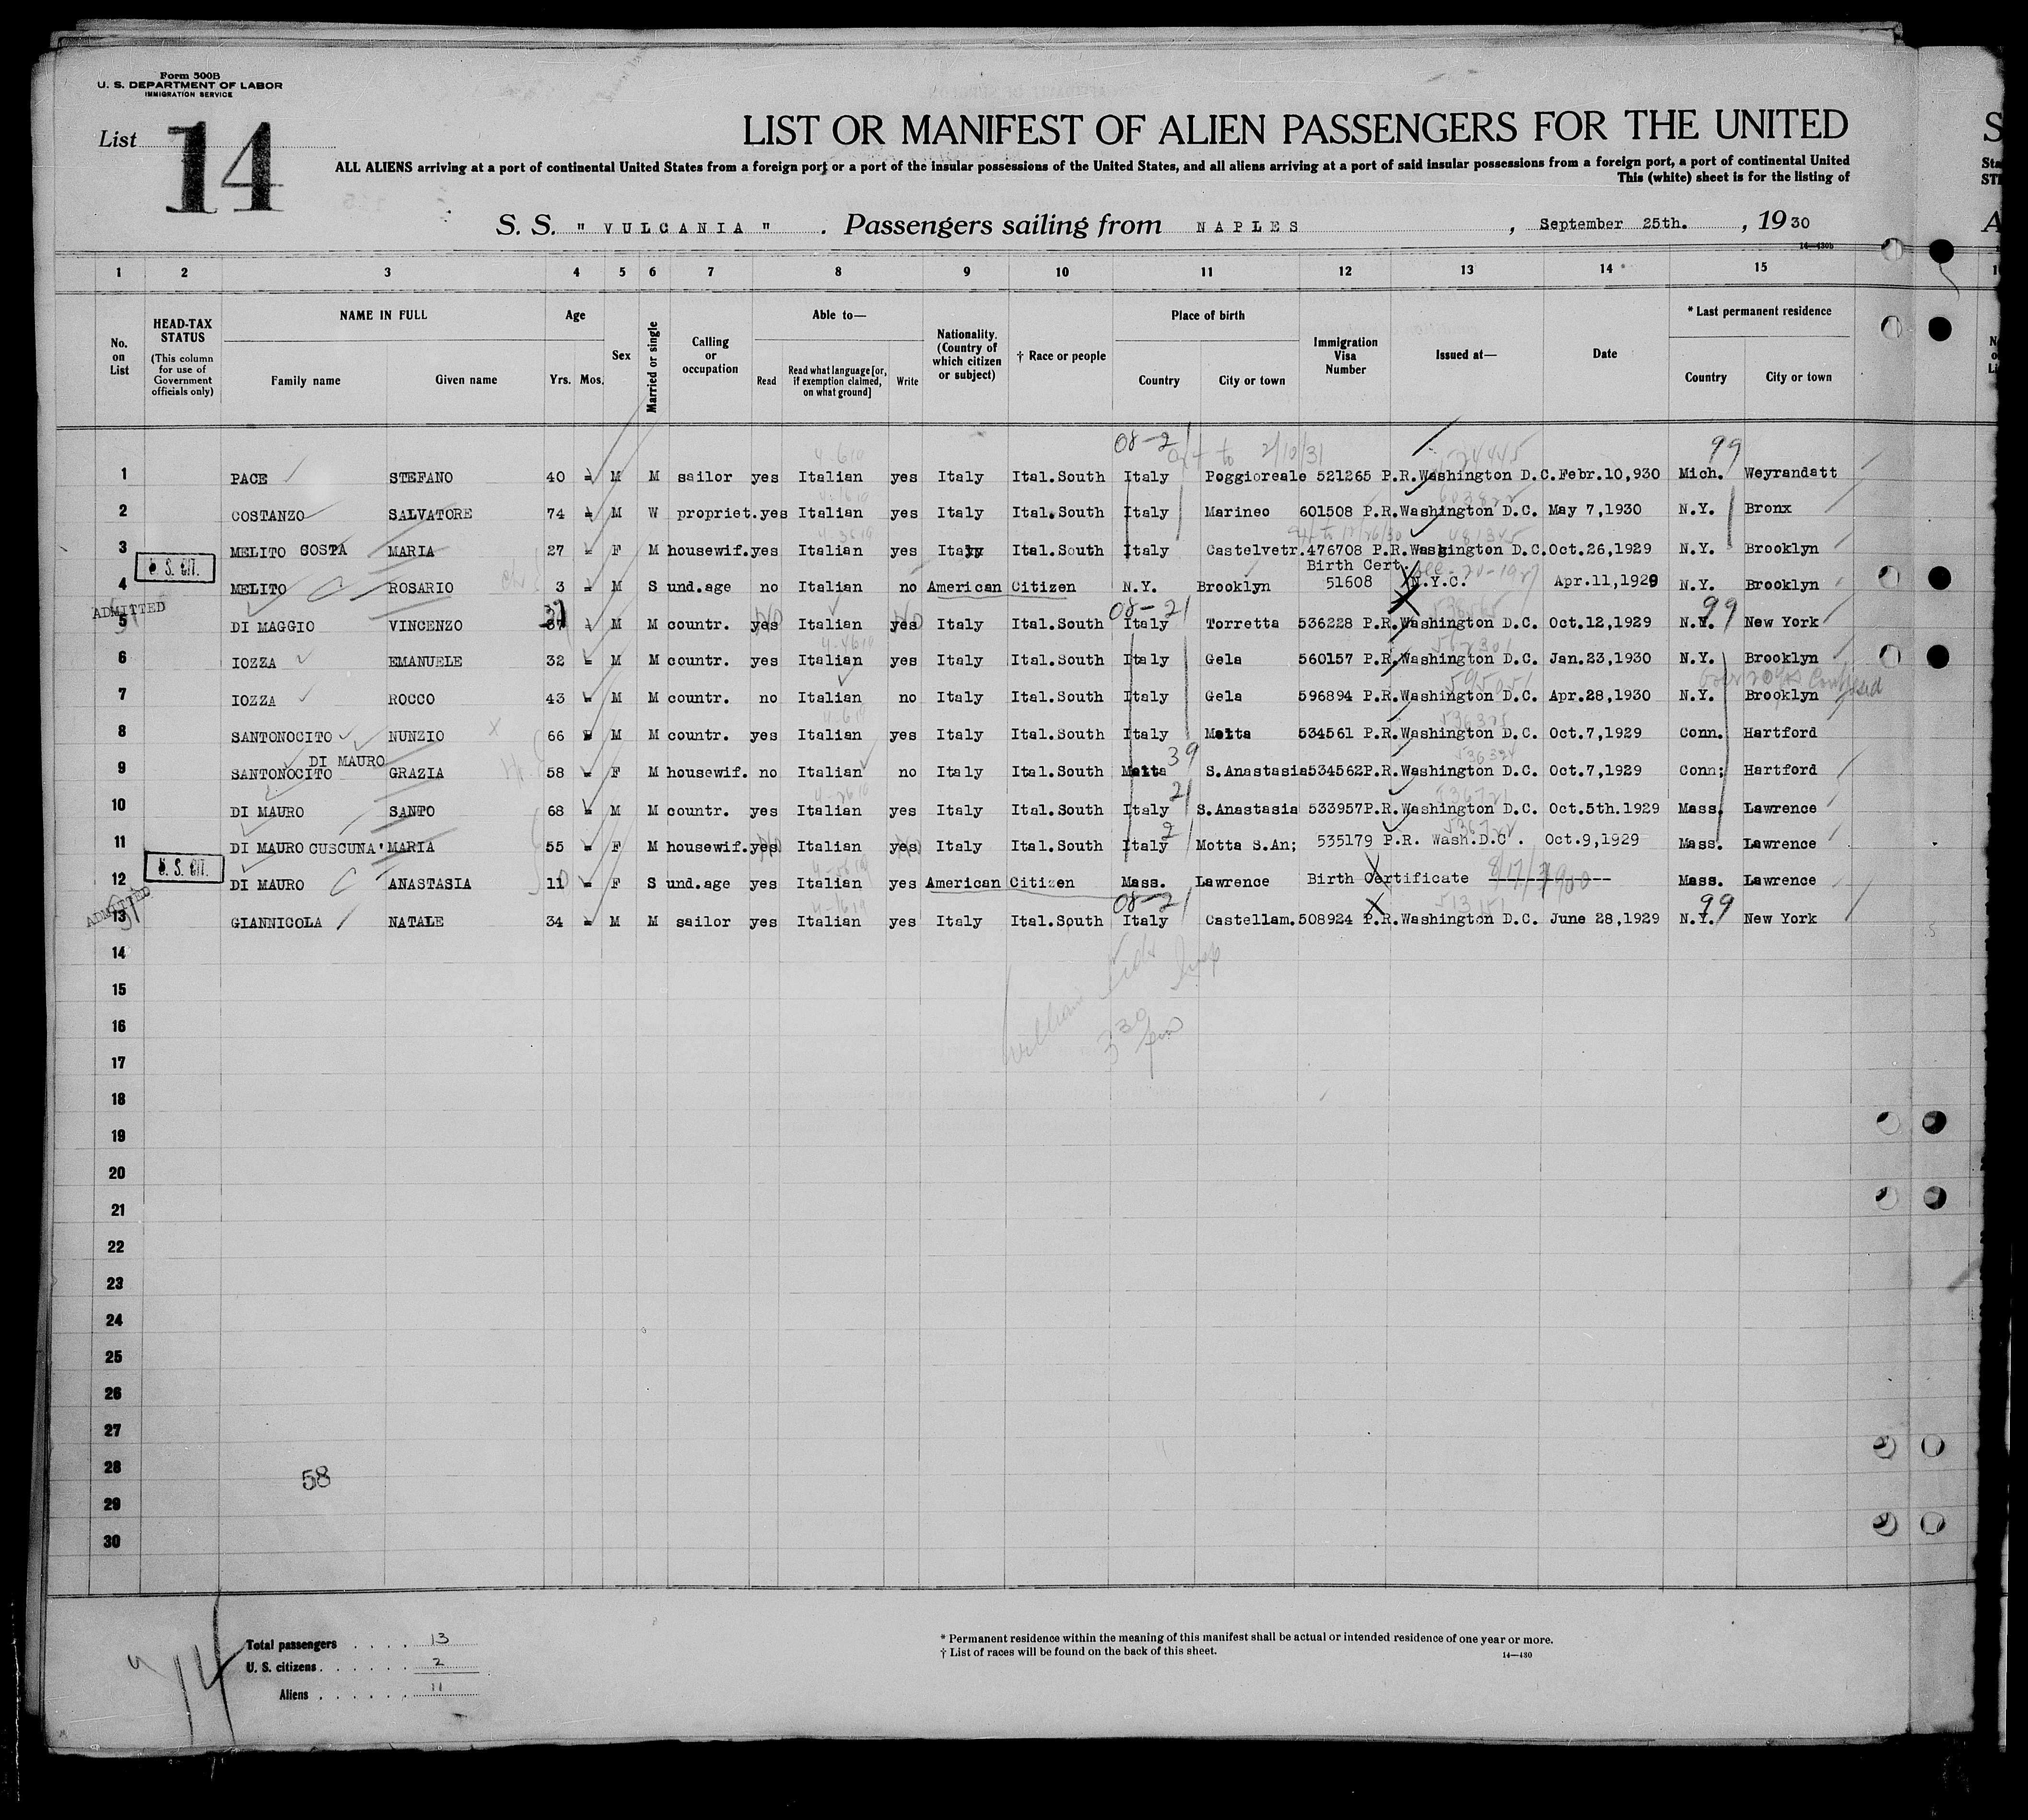 Form 500B
U. S. DEPARTMENT OF LABOR
IMMIGRATION SERVICE
List 14
LIST OR MANIFEST OF ALIEN PASSENGERS FOR THE UNITED
ALL ALIENS arriving at a port of continental United States from a foreign port or a port of the insular possessions of the United States, and all aliens arriving at a port of said insular possessions from a foreign port, a port of continental United
This (white) sheet is for the listing of
S. S. " VULCANIA " . Passengers sailing from NAPLES , September 25th. , 19 30
14—430b
1 2 3 4 5 6 7 8 9 10 11 12 13 14 15
No. on List
HEAD-TAX STATUS
(This column for use of Government officials only)
NAME IN FULL
Family name Given name
Age
Yrs. Mos.
Sex
Married or single
Calling or occupation
Able to—
Read Read what language [or, if exemption claimed, on what ground] Write
Nationality. (Country of which citizen or subject)
† Race or people
Place of birth
Country City or town
Immigration Visa Number
Issued at—
Date
* Last permanent residence
Country City or town
08-21 2/10/31 99
1 PACE STEFANO 40 - M M sailor yes Italian yes Italy Ital.South Italy Poggioreale 521265 P.R.Washington D.C.Febr.10,930 Mich. Weyrandatt
2 COSTANZO SALVATORE 74 - M W propriet.yes Italian yes Italy Ital.South Italy Marineo 601508 P.R.Washington D.C. May 7,1930 N.Y. Bronx
3 MELITO COSTA MARIA 27 - F M housewif.yes Italian yes Italy Ital.South Italy Castelvetr.476708 P.R.Washington D.C.Oct.26,1929 N.Y. Brooklyn
U. S. CIT.
Birth Cert.
4 MELITO ROSARIO 3 - M S und.age no Italian no American Citizen N.Y. Brooklyn 51608 N.Y.C. Apr.11,1929 N.Y. Brooklyn
ADMITTED
08-21 99
5 DI MAGGIO VINCENZO 37 M M countr. yes No Italian yes No Italy Ital.South Italy Torretta 536228 P.R.Washington D.C. Oct.12,1929 N.Y. New York
6 IOZZA EMANUELE 32 - M M countr. yes Italian yes Italy Ital.South Italy Gela 560157 P.R.Washington D.C. Jan.23,1930 N.Y. Brooklyn
7 IOZZA ROCCO 43 - M M countr. no Italian no Italy Ital.South Italy Gela 596894 P.R.Washington D.C. Apr.28,1930 N.Y. Brooklyn
8 SANTONOCITO NUNZIO 66 - M M countr. yes Italian yes Italy Ital.South Italy Motta 534561 P.R.Washington D.C. Oct.7,1929 Conn. Hartford
DI MAURO 39
9 SANTONOCITO GRAZIA 58 - F M housewif. no Italian no Italy Ital.South Motta S.Anastasia534562P.R.Washington D.C. Oct.7,1929 Conn; Hartford
21
10 DI MAURO SANTO 68 - M M countr. yes Italian yes Italy Ital.South Italy S.Anastasia 533957P.R.Washington D.C. Oct.5th.1929 Mass. Lawrence
11 DI MAURO CUSCUNA' MARIA 55 - F M housewif.yes No Italian yes No Italy Ital.South Italy Motta S.An; 535179 P.R. Wash.D.C . Oct.9,1929 Mass. Lawrence
U. S. CIT.
12 DI MAURO ANASTASIA 11 - F S und.age yes Italian yes American Citizen Mass. Lawrence Birth Certificate Mass. Lawrence
ADMITTED
08-21 99
13 GIANNICOLA NATALE 34 - M M sailor yes Italian yes Italy Ital.South Italy Castellam.508924 P.R.Washington D.C. June 28,1929 N.Y. New York
14
15
16
17
18
19
20
21
22
23
24
25
26
27
28
58
29
30
14
Total passengers . . . . 13
U. S. citizens . . . . . . 2
Aliens . . . . . . 11
* Permanent residence within the meaning of this manifest shall be actual or intended residence of one year or more.
† List of races will be found on the back of this sheet.
14—430